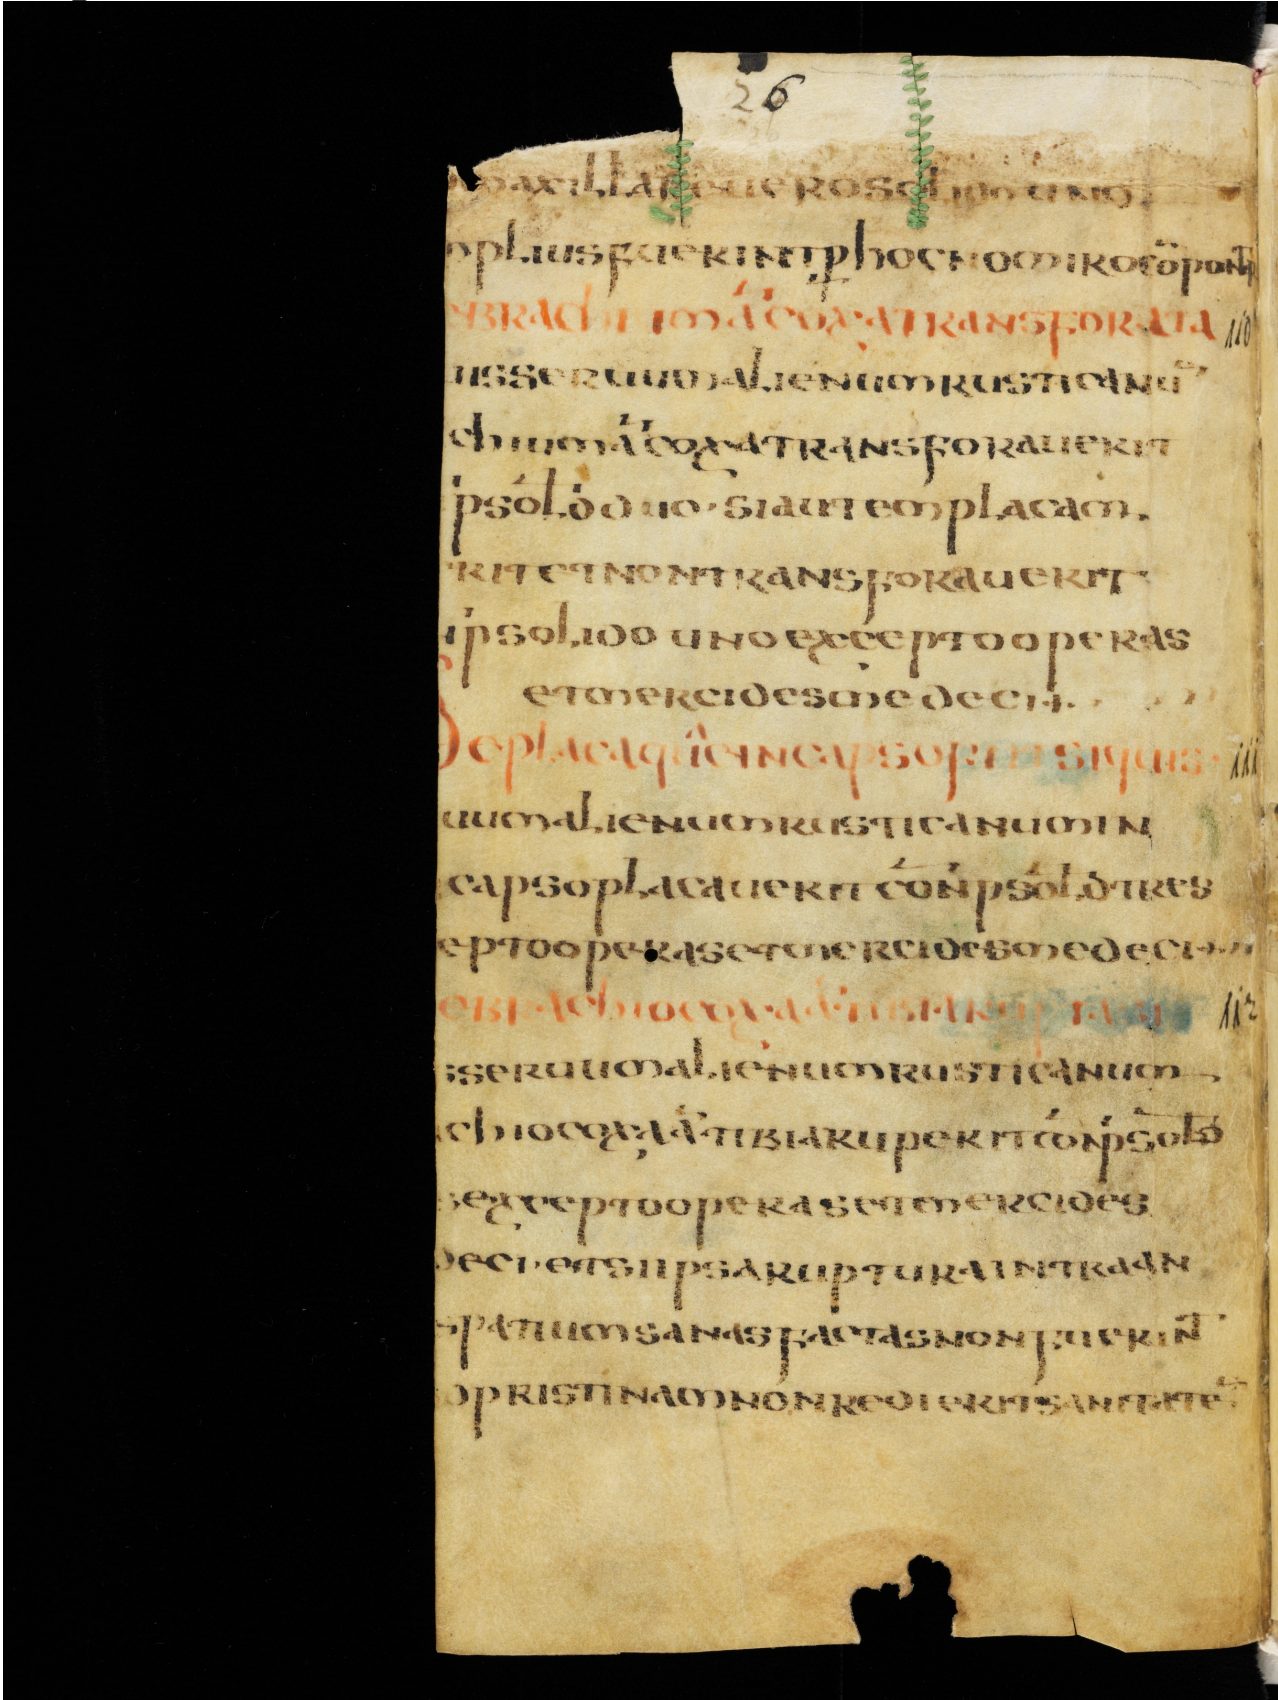 26
maxillares fuero solido uno
plius fuerint p̄ hoc no mirõ cõponat
e brachium ā coxa transforata 110
uis seruum alienum rusticanū
chium ā coxa transforauerit
p̄ sol̄d duo · si autem placam
rit et non transforauerit
p̄ solido uno excepto operas
et mercides medeci ·
de placa qūe in capso fit si quis 111
uum alienum rusticanum in
capso placauerit cōn p̄ sol̄d tres
epto operas et mercides medeci
e brachio coxa ā tibia rupta si 112
s seruum alienum rusticanum
chio coxa ā tibia ruperit cōn p̄ sold
s excepto operas et mercides
deci · et si ipsa ruptura intra an
spatium sanas factas non fuerin̄t
pristinam non redierit sanitatē